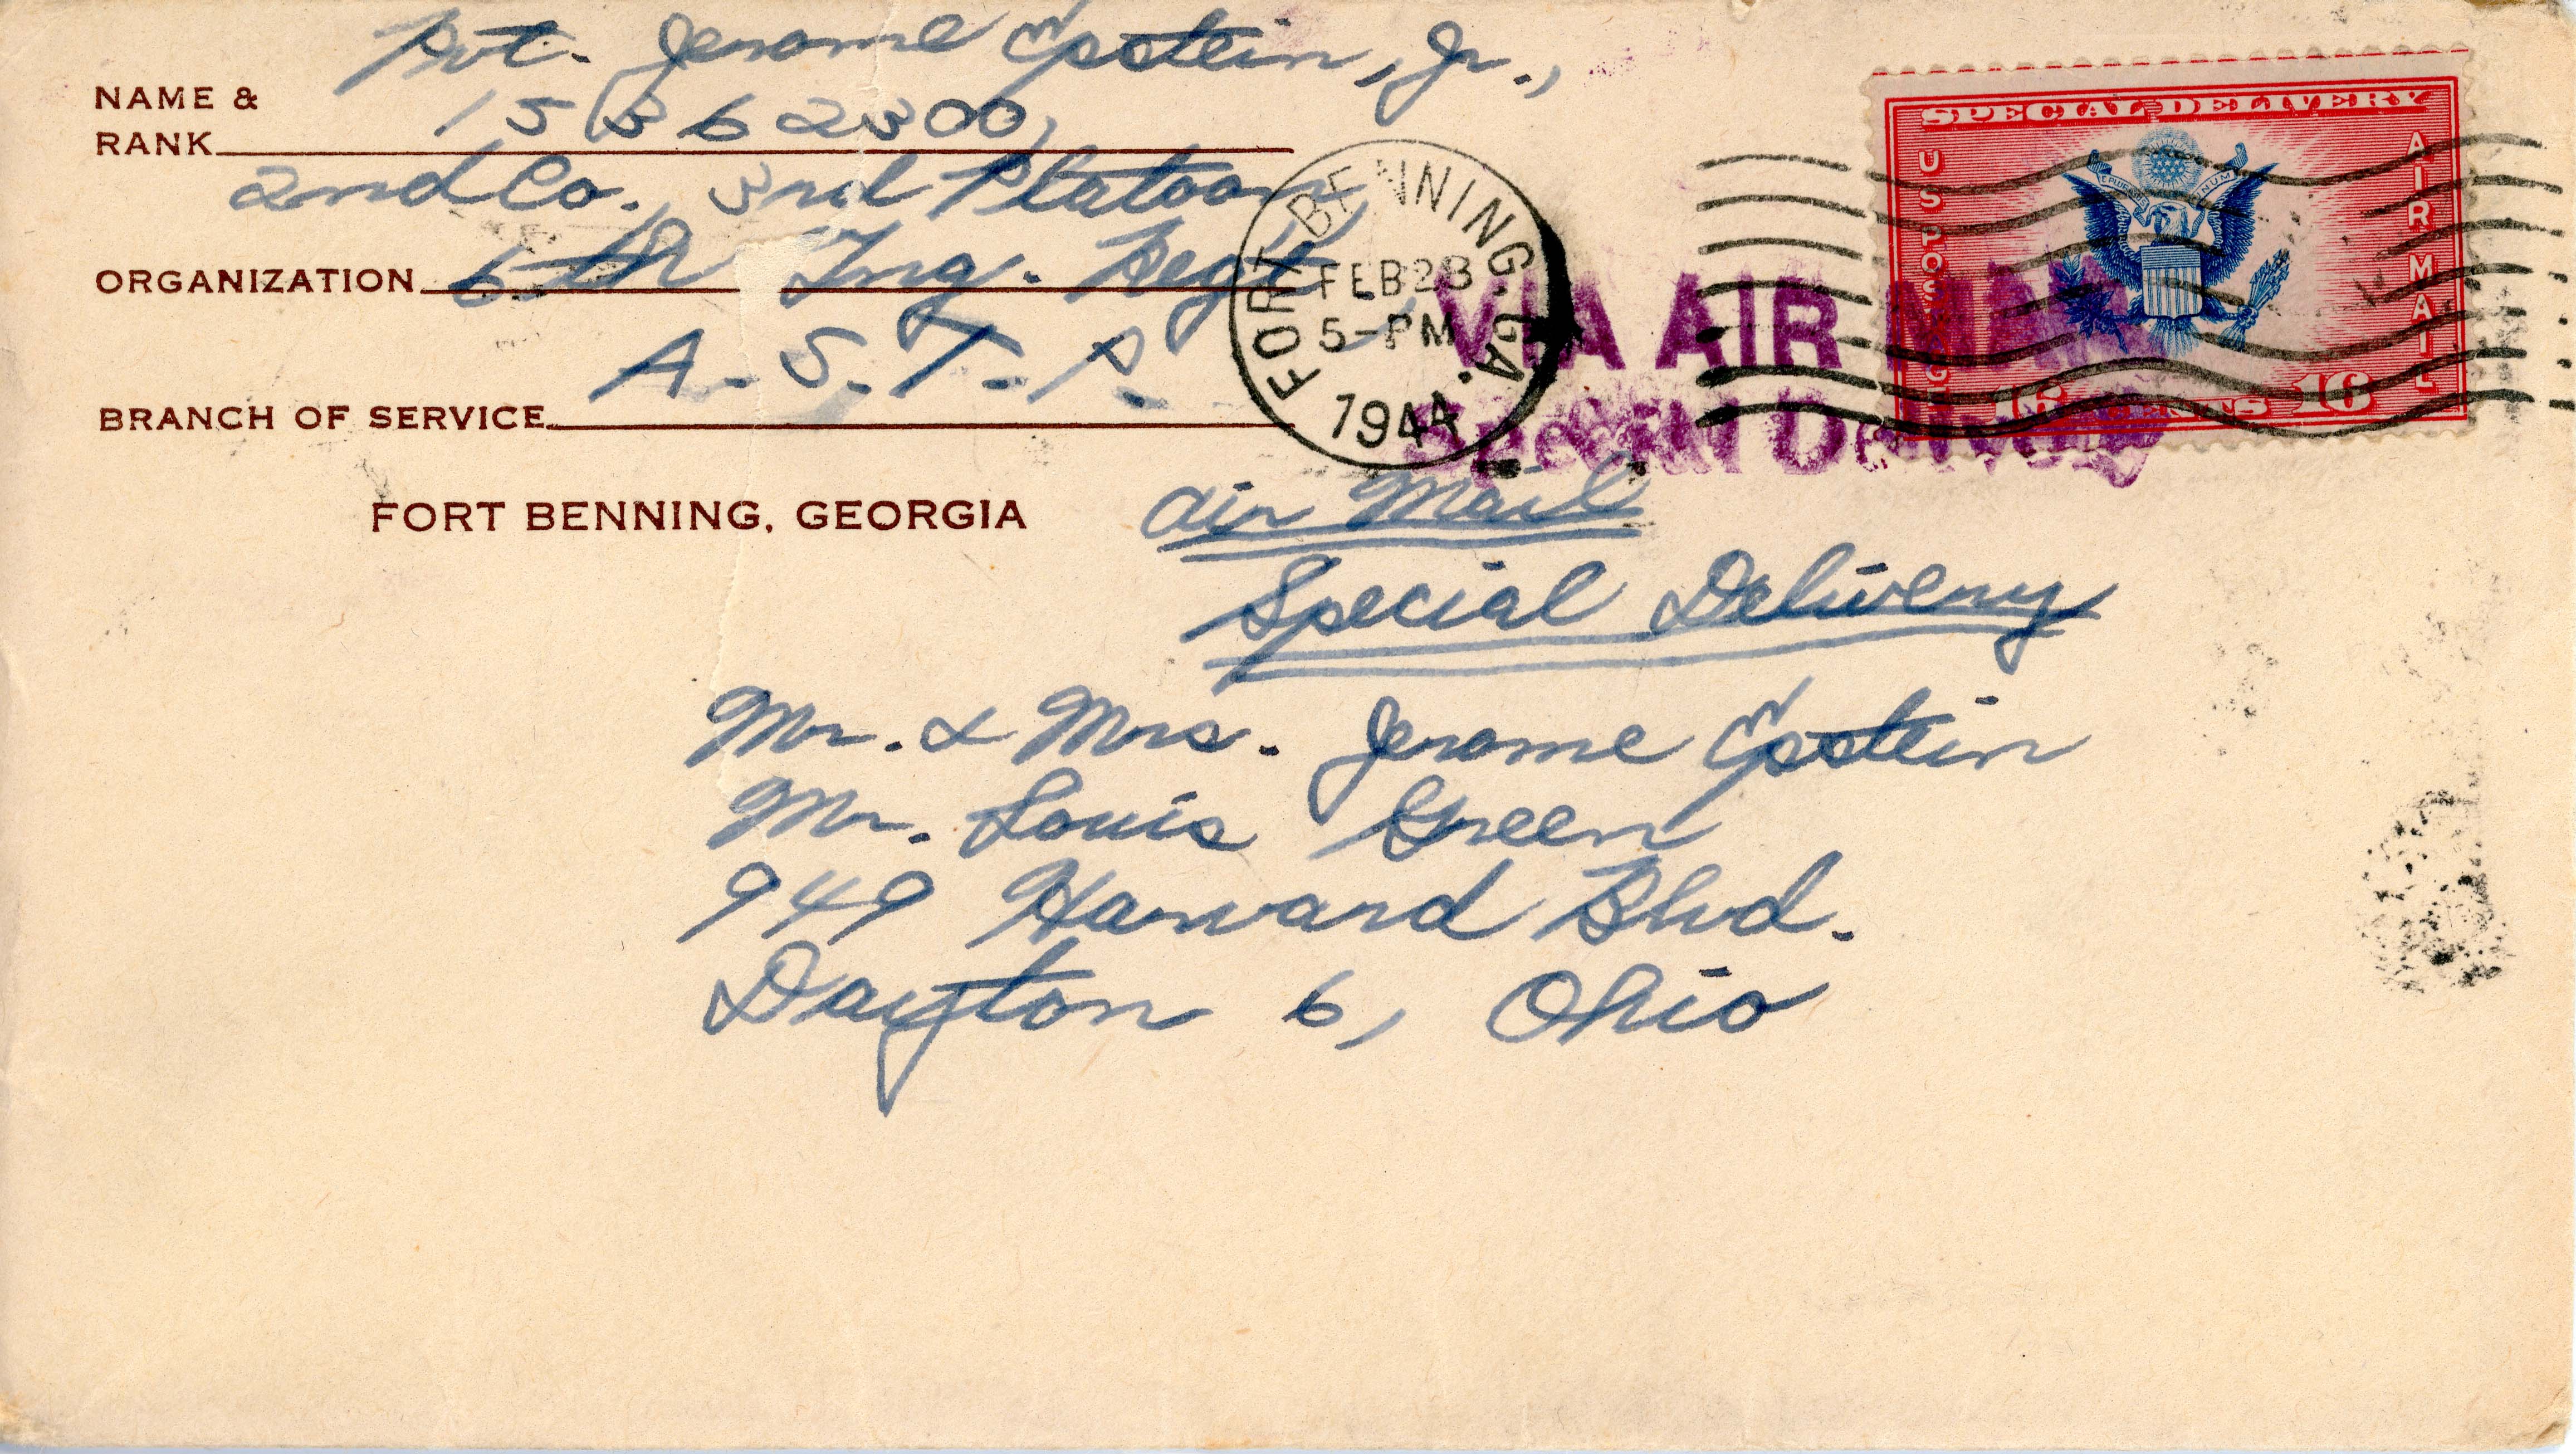 Pvt. Jerome Epstein, Jr.,
NAME &
RANK
15362300,
2nd Co., 3rd Platoon,
ORGANIZATION 6th Tng. Regt.,
BRANCH OF SERVICE A. S. T. P.
FORT BENNING, GEORGIA
FORT BENNING, GA.
FEB 28
5-PM
1944
SPECIAL DELIVERY
U S POSTAGE
AIR MAIL
16 CENTS 16
VIA AIR MAIL
Special Delivery
Air Mail
Special Delivery
Mr. & Mrs. Jerome Epstein
Mr. Louis Green
949 Harvard Blvd.
Dayton 6, Ohio